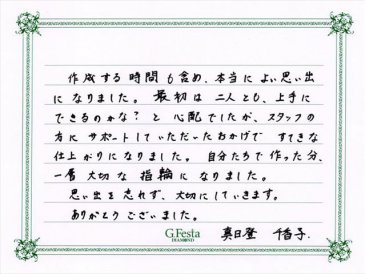 作成する時間も含め、本当によい思い出
になりました。最初は二人とも、上手に
できるのかな?と心配でしたが、スタッフの
方にサポートしていただいたおかげですてきな
仕上がりになりました。自分たちで作った分、
一層大切な指輪になりました。
思い出を忘れず、大切にしていきます。
ありがとうございました。
G.Festa
DIAMOND
真日登 千香子.